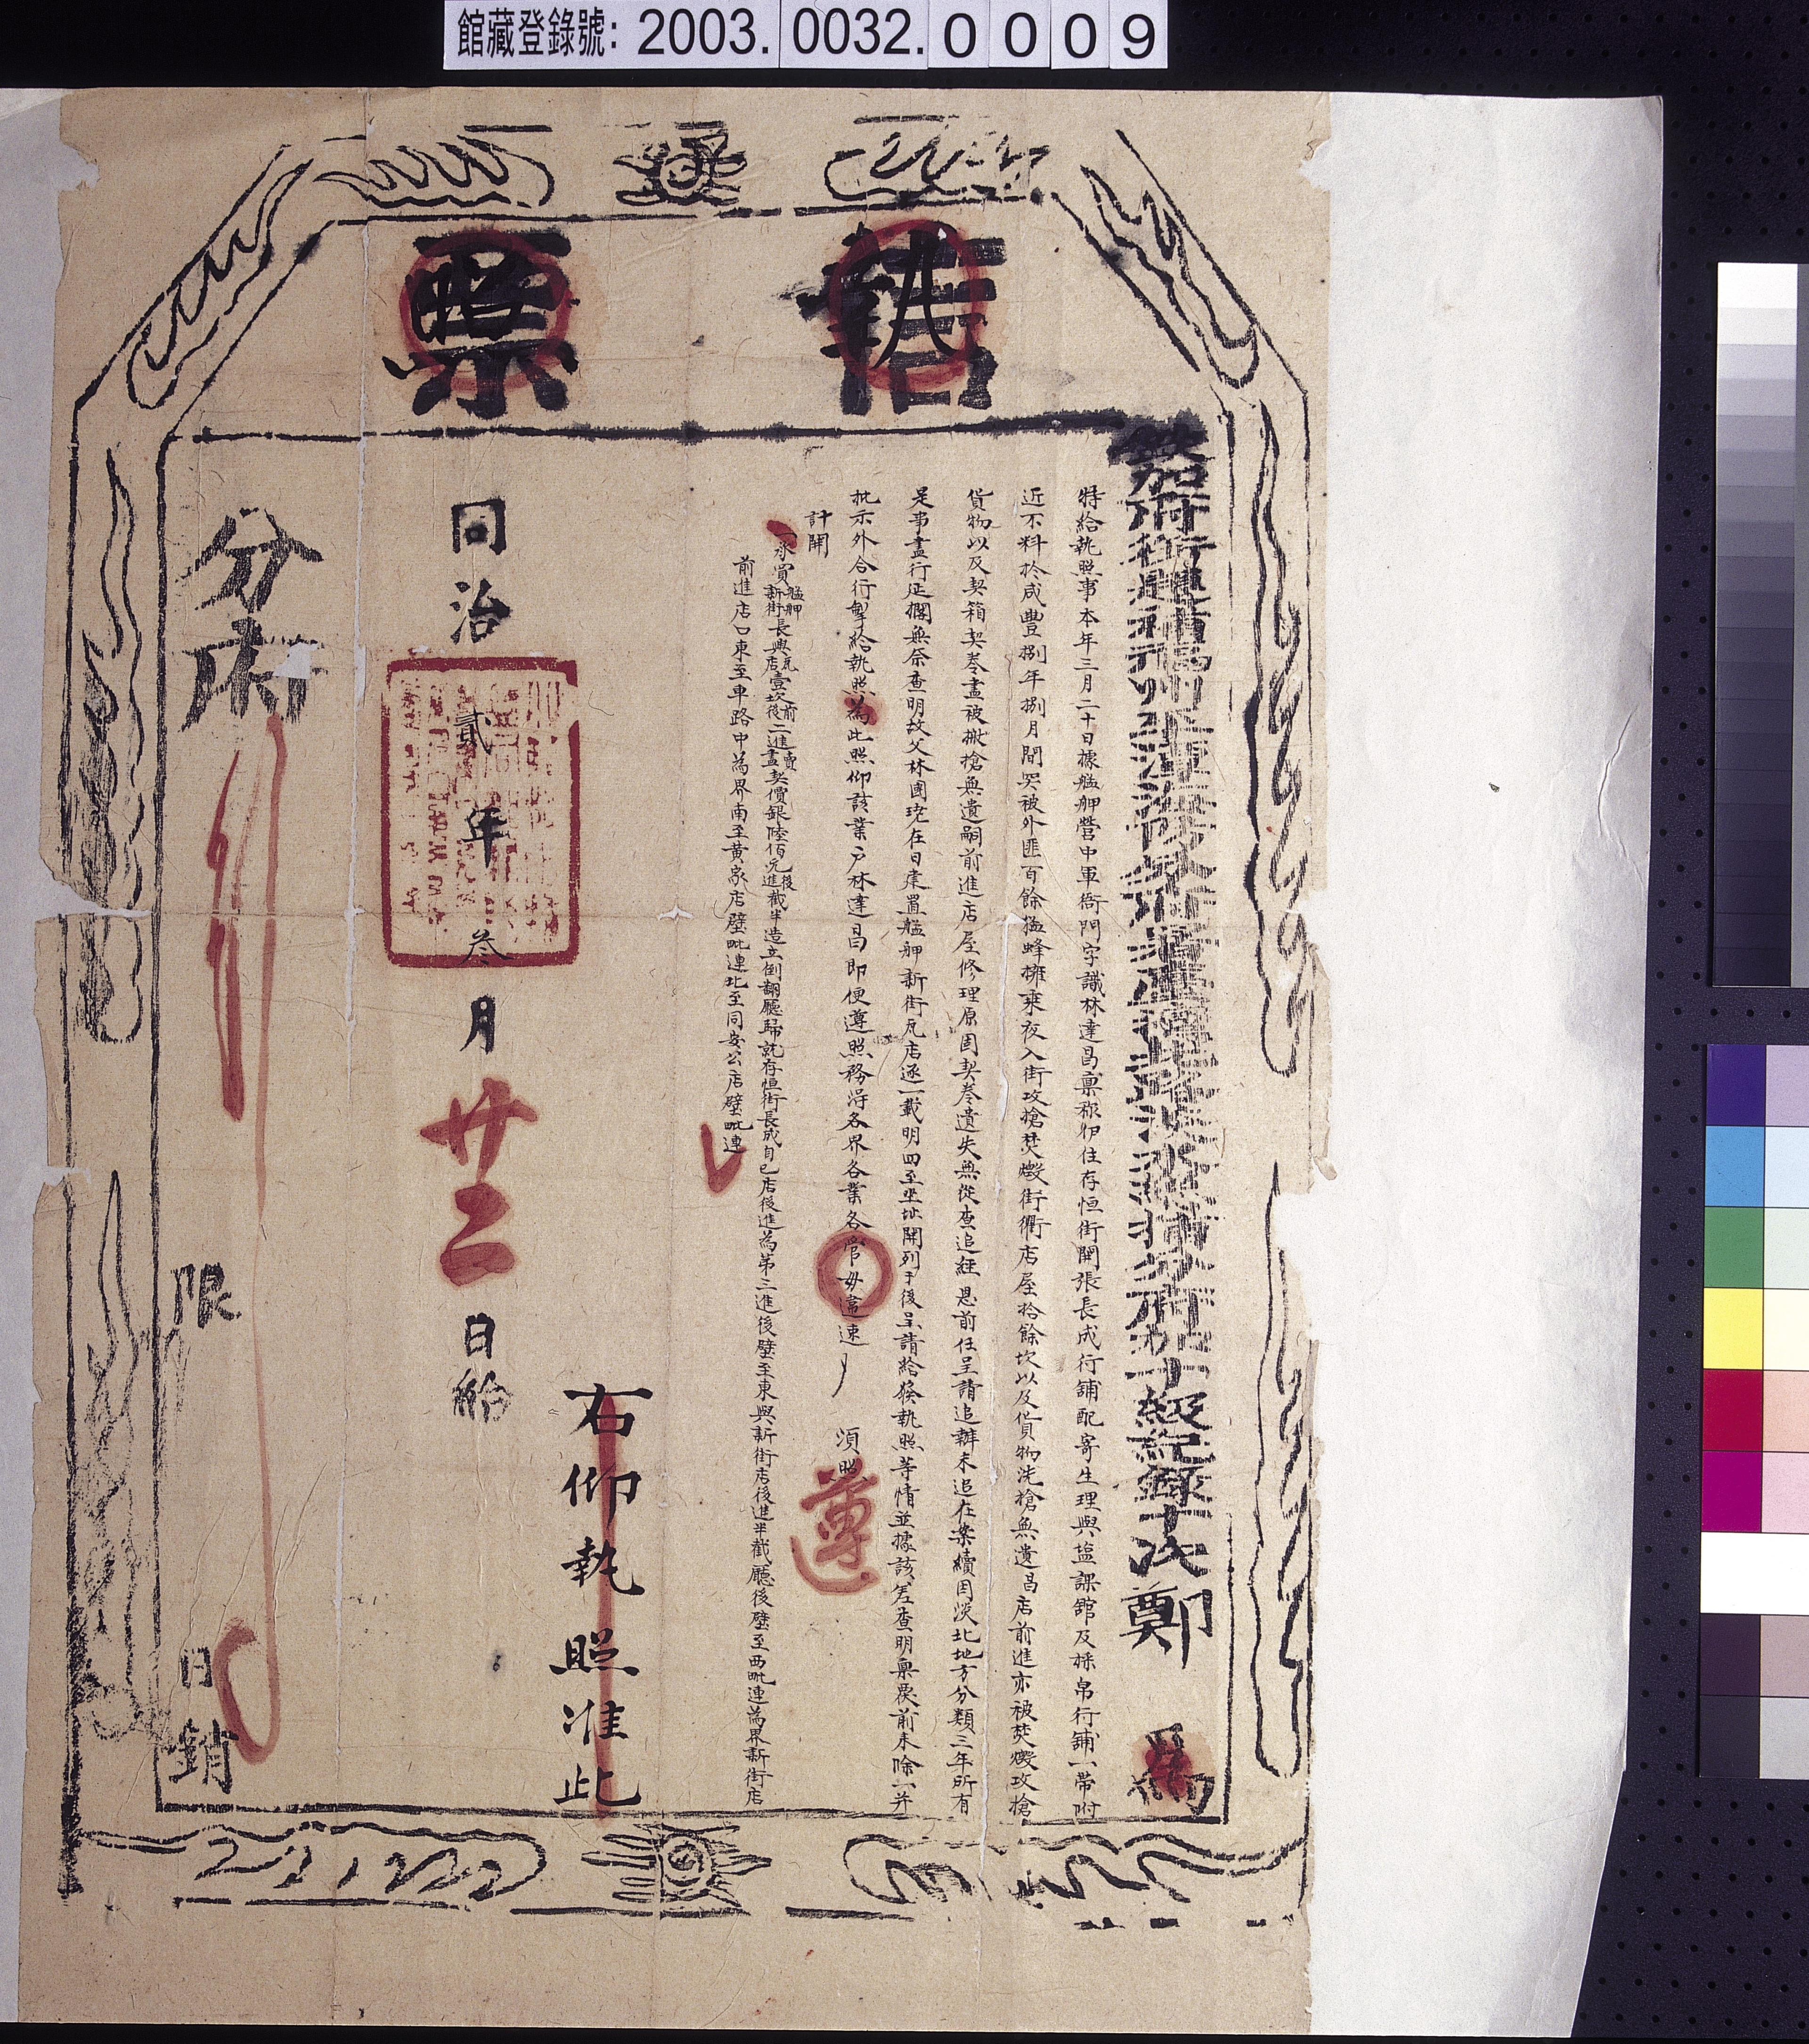 館藏登錄號: 2003.0032.0009
執照
欽加府銜題補福州平潭海防分府署臺灣北路淡水總捕分府加十級紀錄十次鄭 為
特給執照事本年三月二十日據艋舺營中軍衙門字識林達昌稟稱卯住存恒街開張長成行舖配寄生理與盐課館及綵帛行舖一帶附
近不料於咸豐捌年捌月間突被外匪百餘猛蜂擁乘夜入街攻搶焚燬街衢店屋拾餘坎以及貨物洗搶無遺昌店前進亦被焚燬攻搶
貨物以及契箱契卷盡被擄搶無遺嗣前進店屋修理原固契卷遺失無從查追經恩前任呈請追辦未追在案續因淡北地方分類三年所有
是事盡行延擱無奈查明故父林國珖在日建置艋舺新街瓦店逐一載明四至坐址開列于後呈請給發執照等情並據該差查明稟覆前來除一并
批示外合行掣給執照為此照仰該業户林達昌即便遵照務將各界各業各管毋違速〃須照 遵
計開
一承買艋舺新街長興瓦店壹坎前後二進賣盡契價銀陸佰元後進截半造立倒翻廳歸就存恒街長成自己店後進為第三進後壁至東與新街店後進半截廳後壁至西毗連為界新街店
前進店口東至車路中為界南至黃家店壁毗連北至同安公店壁毗連
右仰執照准此
同治貳年叁月廿二日給
分府
限 日銷